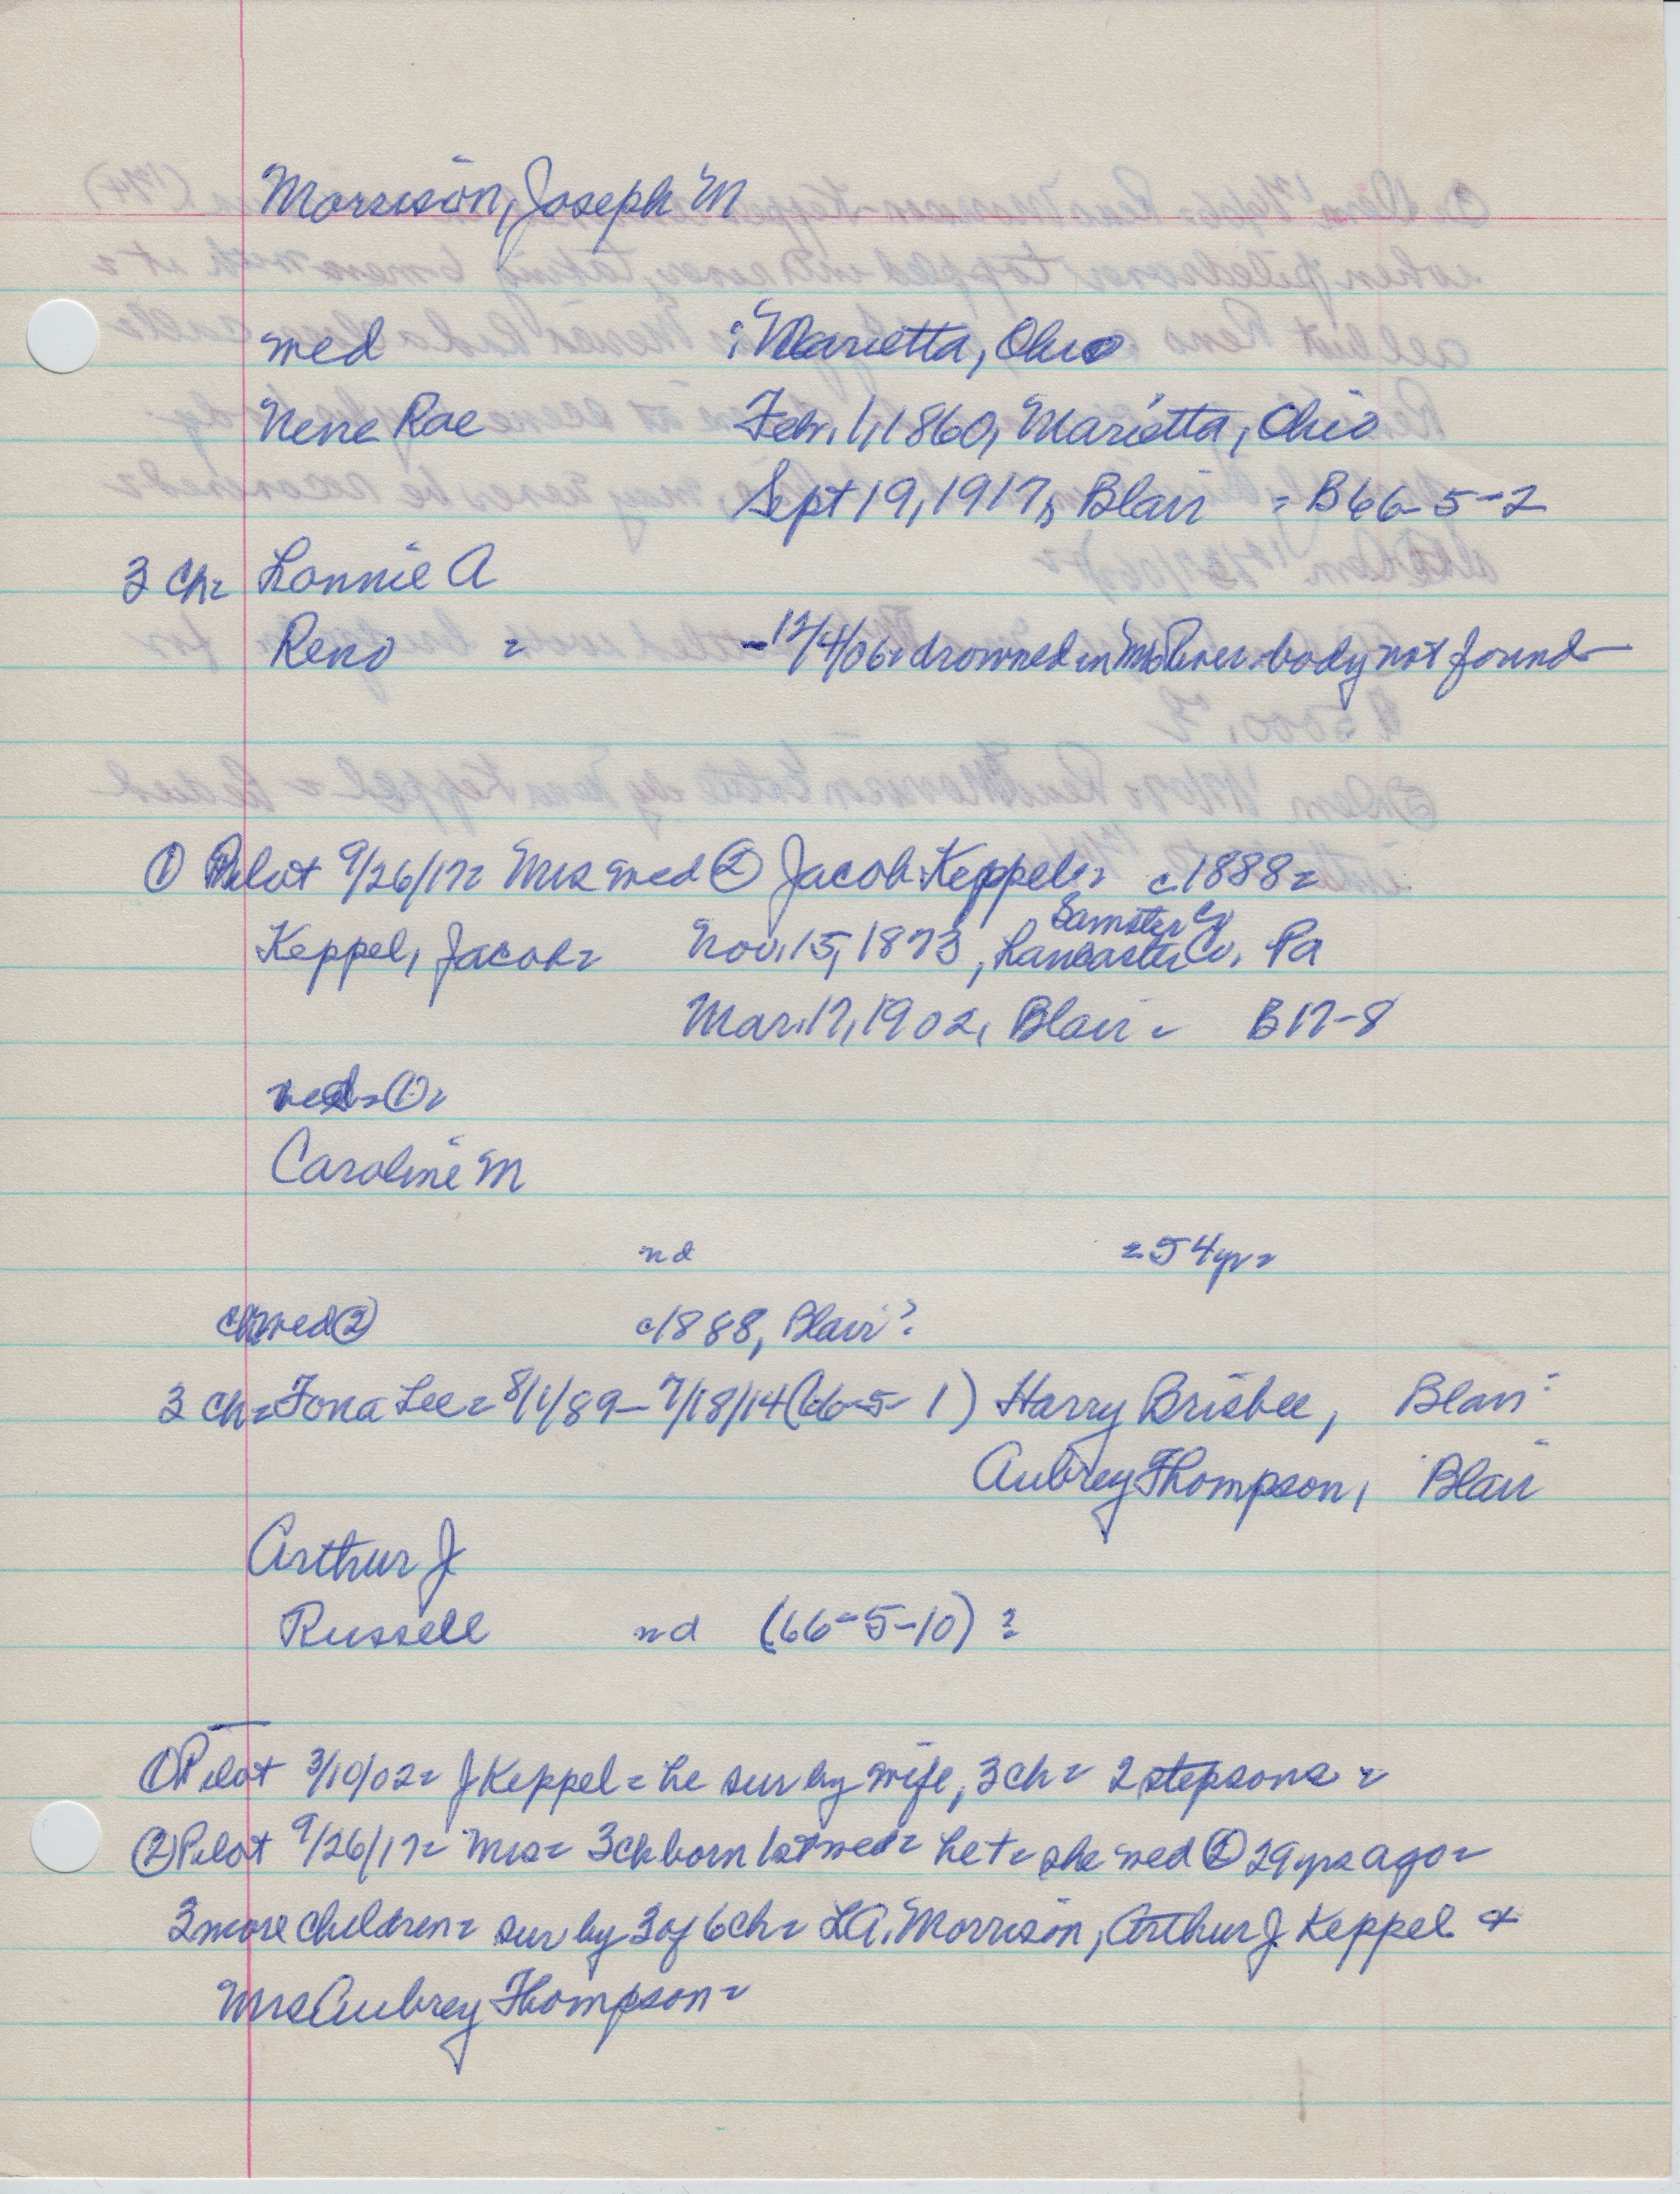 Morrison, Joseph M
med : Marietta, Ohio
Nene Rae Feb. 1, 1860, Marietta, Ohio
Sept 19, 1917, Blair = B66-5-2
3 ch= Lonnie A
Reno = -12/4/06= drowned in Mo River-body not found-
① Pilot 9/26/17= Mrs med ② Jacob Keppel= c1888=
Samster Co
Keppel, Jacob= Nov. 15, 1873, Lancaster Co, Pa
Mar. 17, 1902, Blair = B17-8
med=①=
Caroline M
nd =54yr=
med② c1888, Blair?
3 ch= Fona Lee= 8/1/89-7/18/14 (66-5-1) Harry Brisbee, Blair
Aubrey Thompson, Blair
Arthur J
Russell nd (66-5-10)?
① Pilot 3/10/02= J Keppel= he sur by wife, 3 ch= 2 stepsons=
② Pilot 9/26/17= Mrs= 3 ch born 1st med= he += she med ② 29 yrs ago=
3 more children= sur by 3 of 6 ch= L.A. Morrison, Arthur J. Keppel &
Mrs Aubrey Thompson=